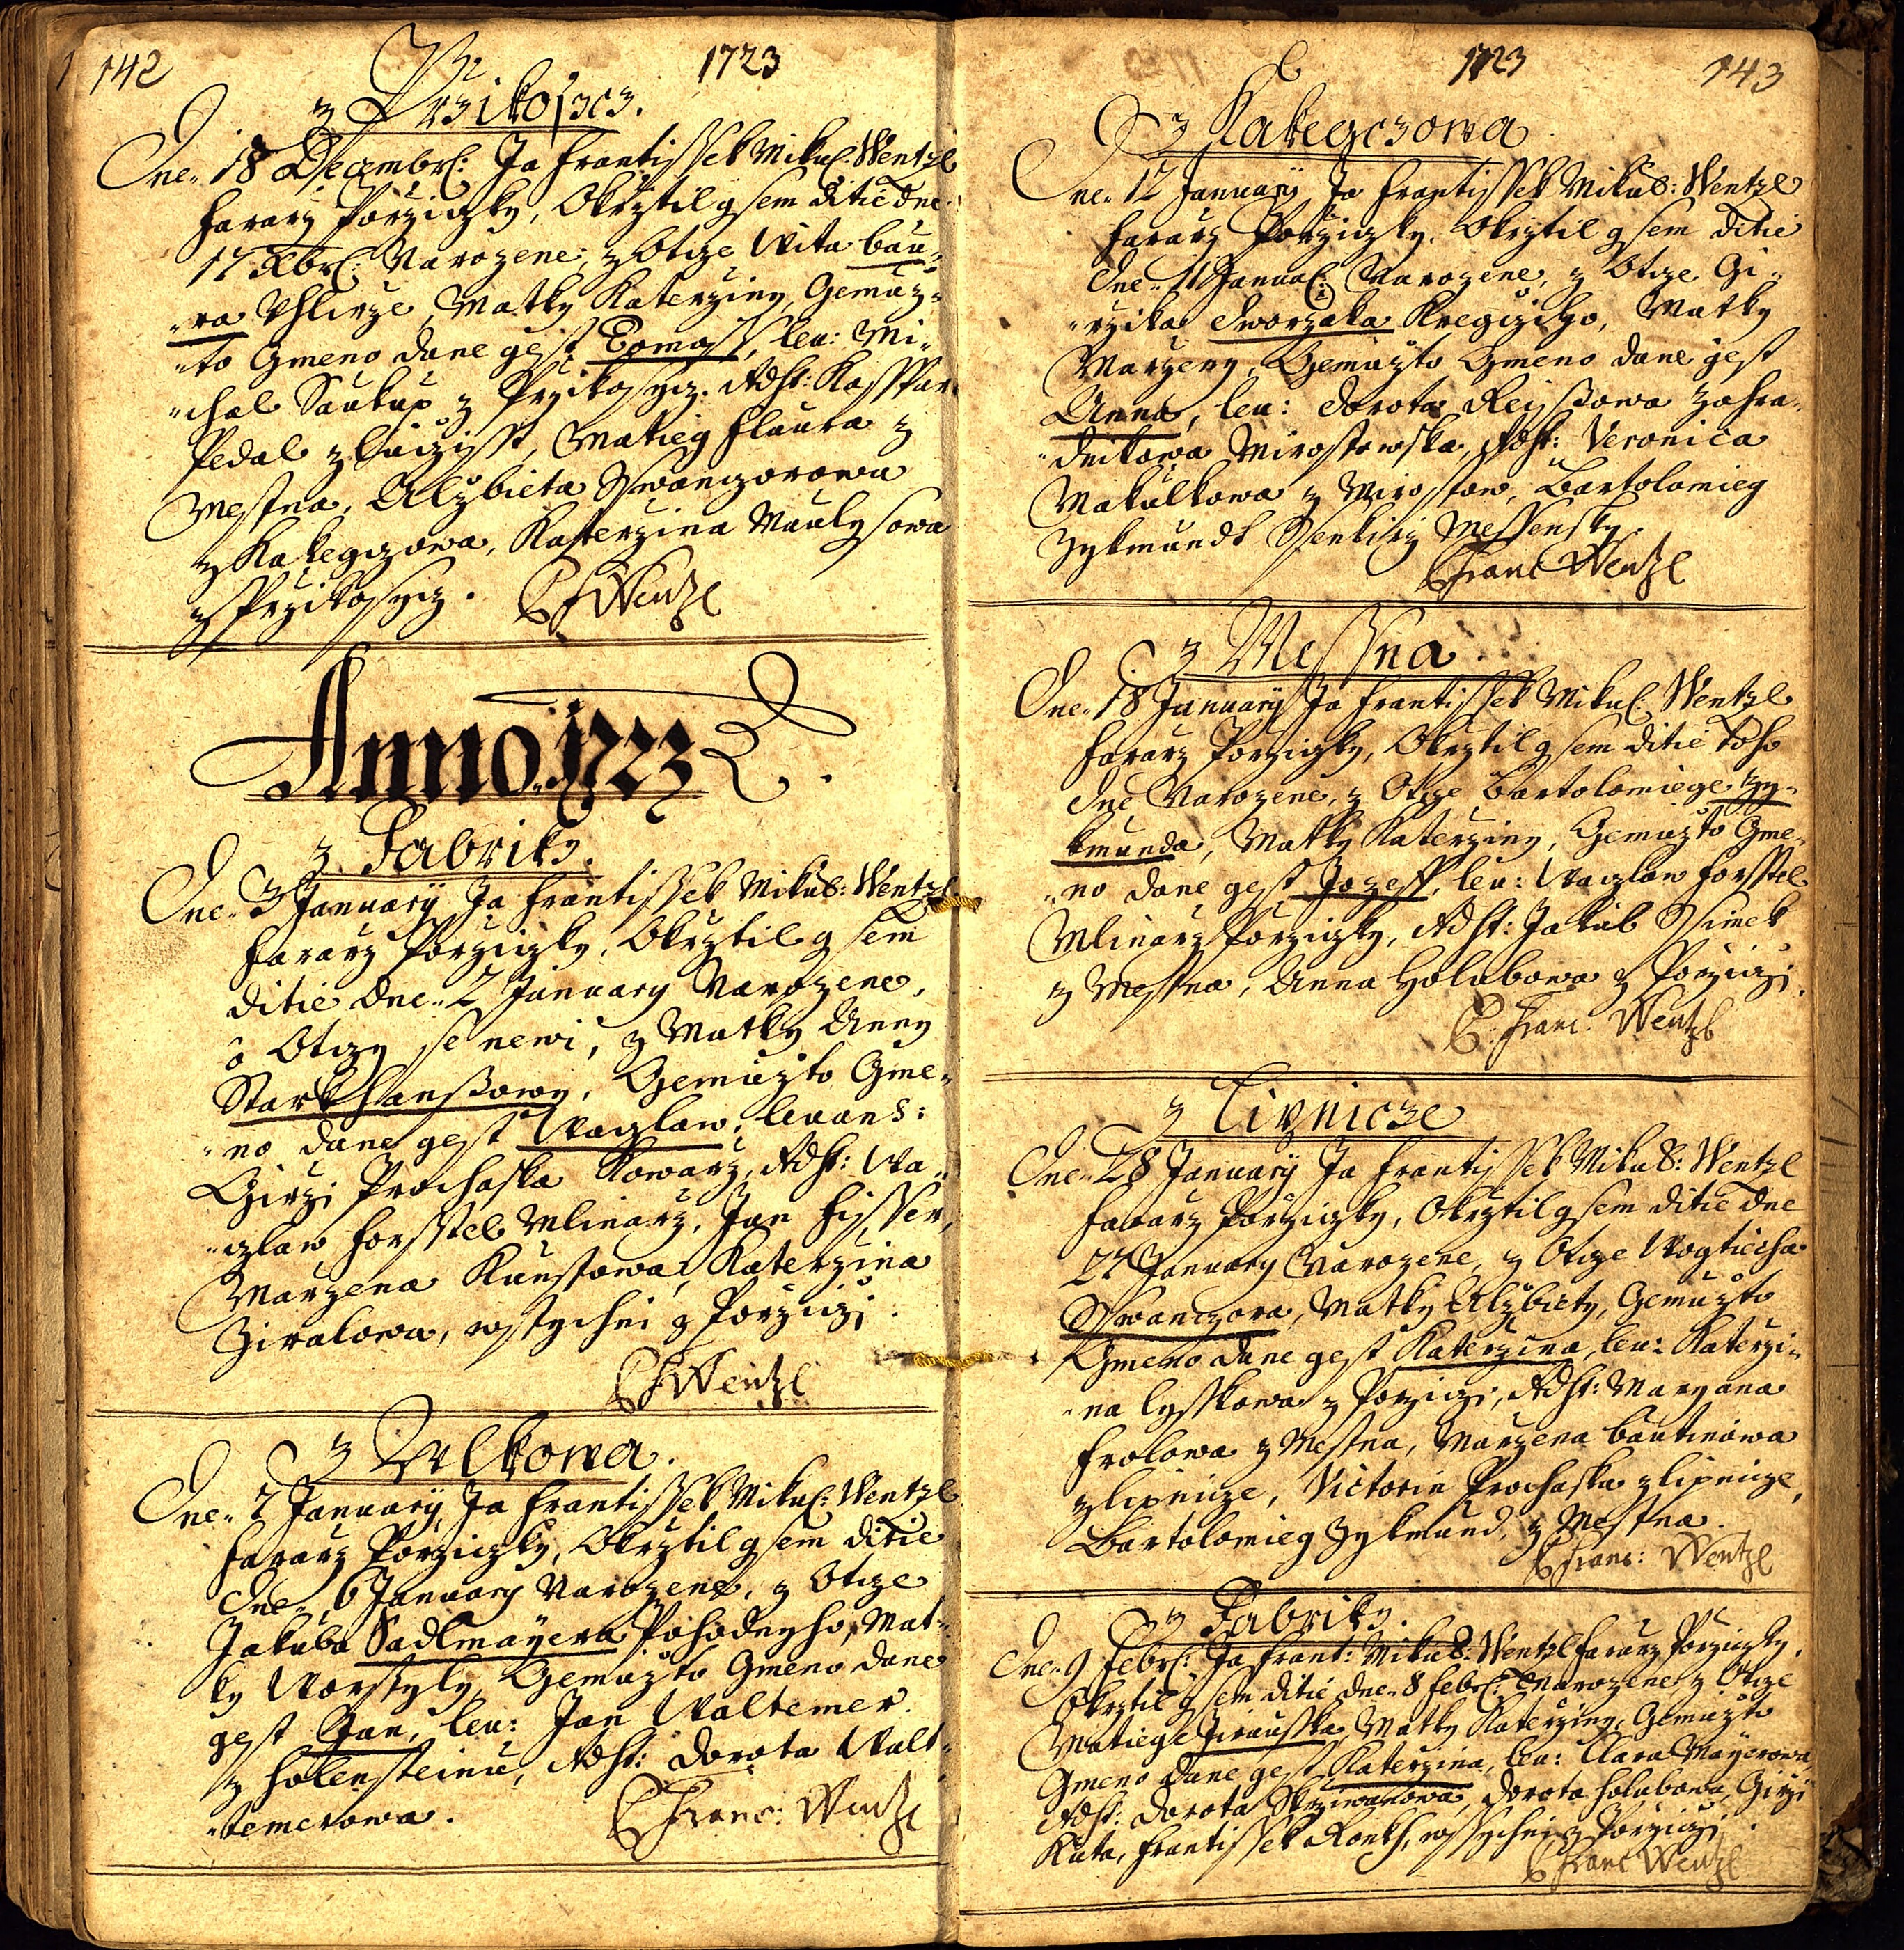 142
1723
z Przikosycz.
Dne 18 Decembr: Ja Frantissek Mikul: Wentzl
Fararz Porziczky, Okrztil gsem ditie dne
17 Xbr: Narozene, z Otcze Wita Bau„
„ra Uhlirze, Matky Katerziny, Gemuz„
„to Gmeno dane gest Tomass, leu: Mi„
„chal Saukup z Przikosycz. Adst: Kasspar
Pedal z Auczisst, Matieg Flaura z
Messna, Alzbieta Sswanczorowa
z Kakegczowa, Katerzina Maulysowa
z Przikosycz. CFWentzl
Anno 1723
z Fabriky.
Dne 3 January Ja Frantissek Mikul: Wentzl
Fararz Porziczky, Okrztil gsem
ditie dne 2 January Narozene,
o Otczy se newi, z Matky Anny
Starkhanßowy, Gemuzto Gme„
„no dane gest Waczlaw, levans:
Girzi Prochaska Kowarz, Adst: Wa„
„czlaw Forsstel Mlinarz, Jan Fisser,
Marzena Kunstowa, Katerzina
Ziralowa, wssychni z Porziczi.
CFWentzl
z Wlkowa.
Dne 7 January, Ja Frantissek Mikul: Wentzl
Fararz Porziczky, Okrztil gsem ditie
dne 6 January Narozene, z Otcze
Jakuba Sadlmayera Pohodnyho, Mat„
ky Worssyly, Gemuzto Gmeno dane
gest Jan, leu: Jan Waltemer
z Holensteinu, Adst: Dorota Walt„
„temerowa. CFranc: Wentzl
1723
143
z Kakegczowa
Dne 12 January Ja Frantissek Mikul: Wentzl
Fararz Porziczky, Okrztil gsem ditie
dne 11 Janua: Narozene, z Otcze Gi„
„rzika Dworzaka Kregcziho, Matky
Marzeny, Gemuzto Gmeno dane gest
Anna, leu: Dorota Reyßowa Zahra„
„dnikowa Mirossowska, Adst: Veronica
Makulkowa z Mirossow, Bartolomieg
Zykmundt Ssenkirz Messensky.
CFranc Wentzl
z Messna
Dne 18 January Ja Frantissek Mikul: Wentzl
Fararz Porziczky, Okrztil gsem ditie toho
dne Narozene, z Otcze Bartolomiege Zy„
kmunda, Matky Katerziny, Gemuzto Gme„
„no dane gest Jozeff, leu: Waczlaw Forsstel
Mlinarz Porziczky, Adst: Jakub Ssimek
z Messna, Anna Holubowa z Porziczi.
C. Franc: Wentzl
z Lipnicze
Dne 28 January Ja Frantissek Mikul: Wentzl
Fararz Porziczky, Okrztil gsem ditie dne
27 January Narozene, z Otcze Wogtiecha
Sswanczora, Matky Alzbiety, Gemuzto
Gmeno dane gest Katerzina, leu: Katerzi„
„na Lysskowa z Porziczi, Adst: Maryana
Frolowa z Messna, Marzena Bautinowa
z Lipnicze, Victorin Prochaska z Lipnicze,
Bartolomieg Zykmund, z Messna.
CFranc: Wentzl
z Fabriky.
Dne 9 Febr: Ja Frant: Mikul: Wentzl Fararz Porziczky,
Okrztil gsem ditie dne 8 Febr: Narozene z Otcze
Matiege Jirausska, Matky Katerziny, Gemuzto
Gmeno dane gest Katerzina, leu: Clara Mayerowa,
Adst: Dorota Skrziwanowa, Dorota Holubowa, Girzi
Kuta, Frantissek Ronkh, wssychni z Porziczi.
CFranc Wentzl